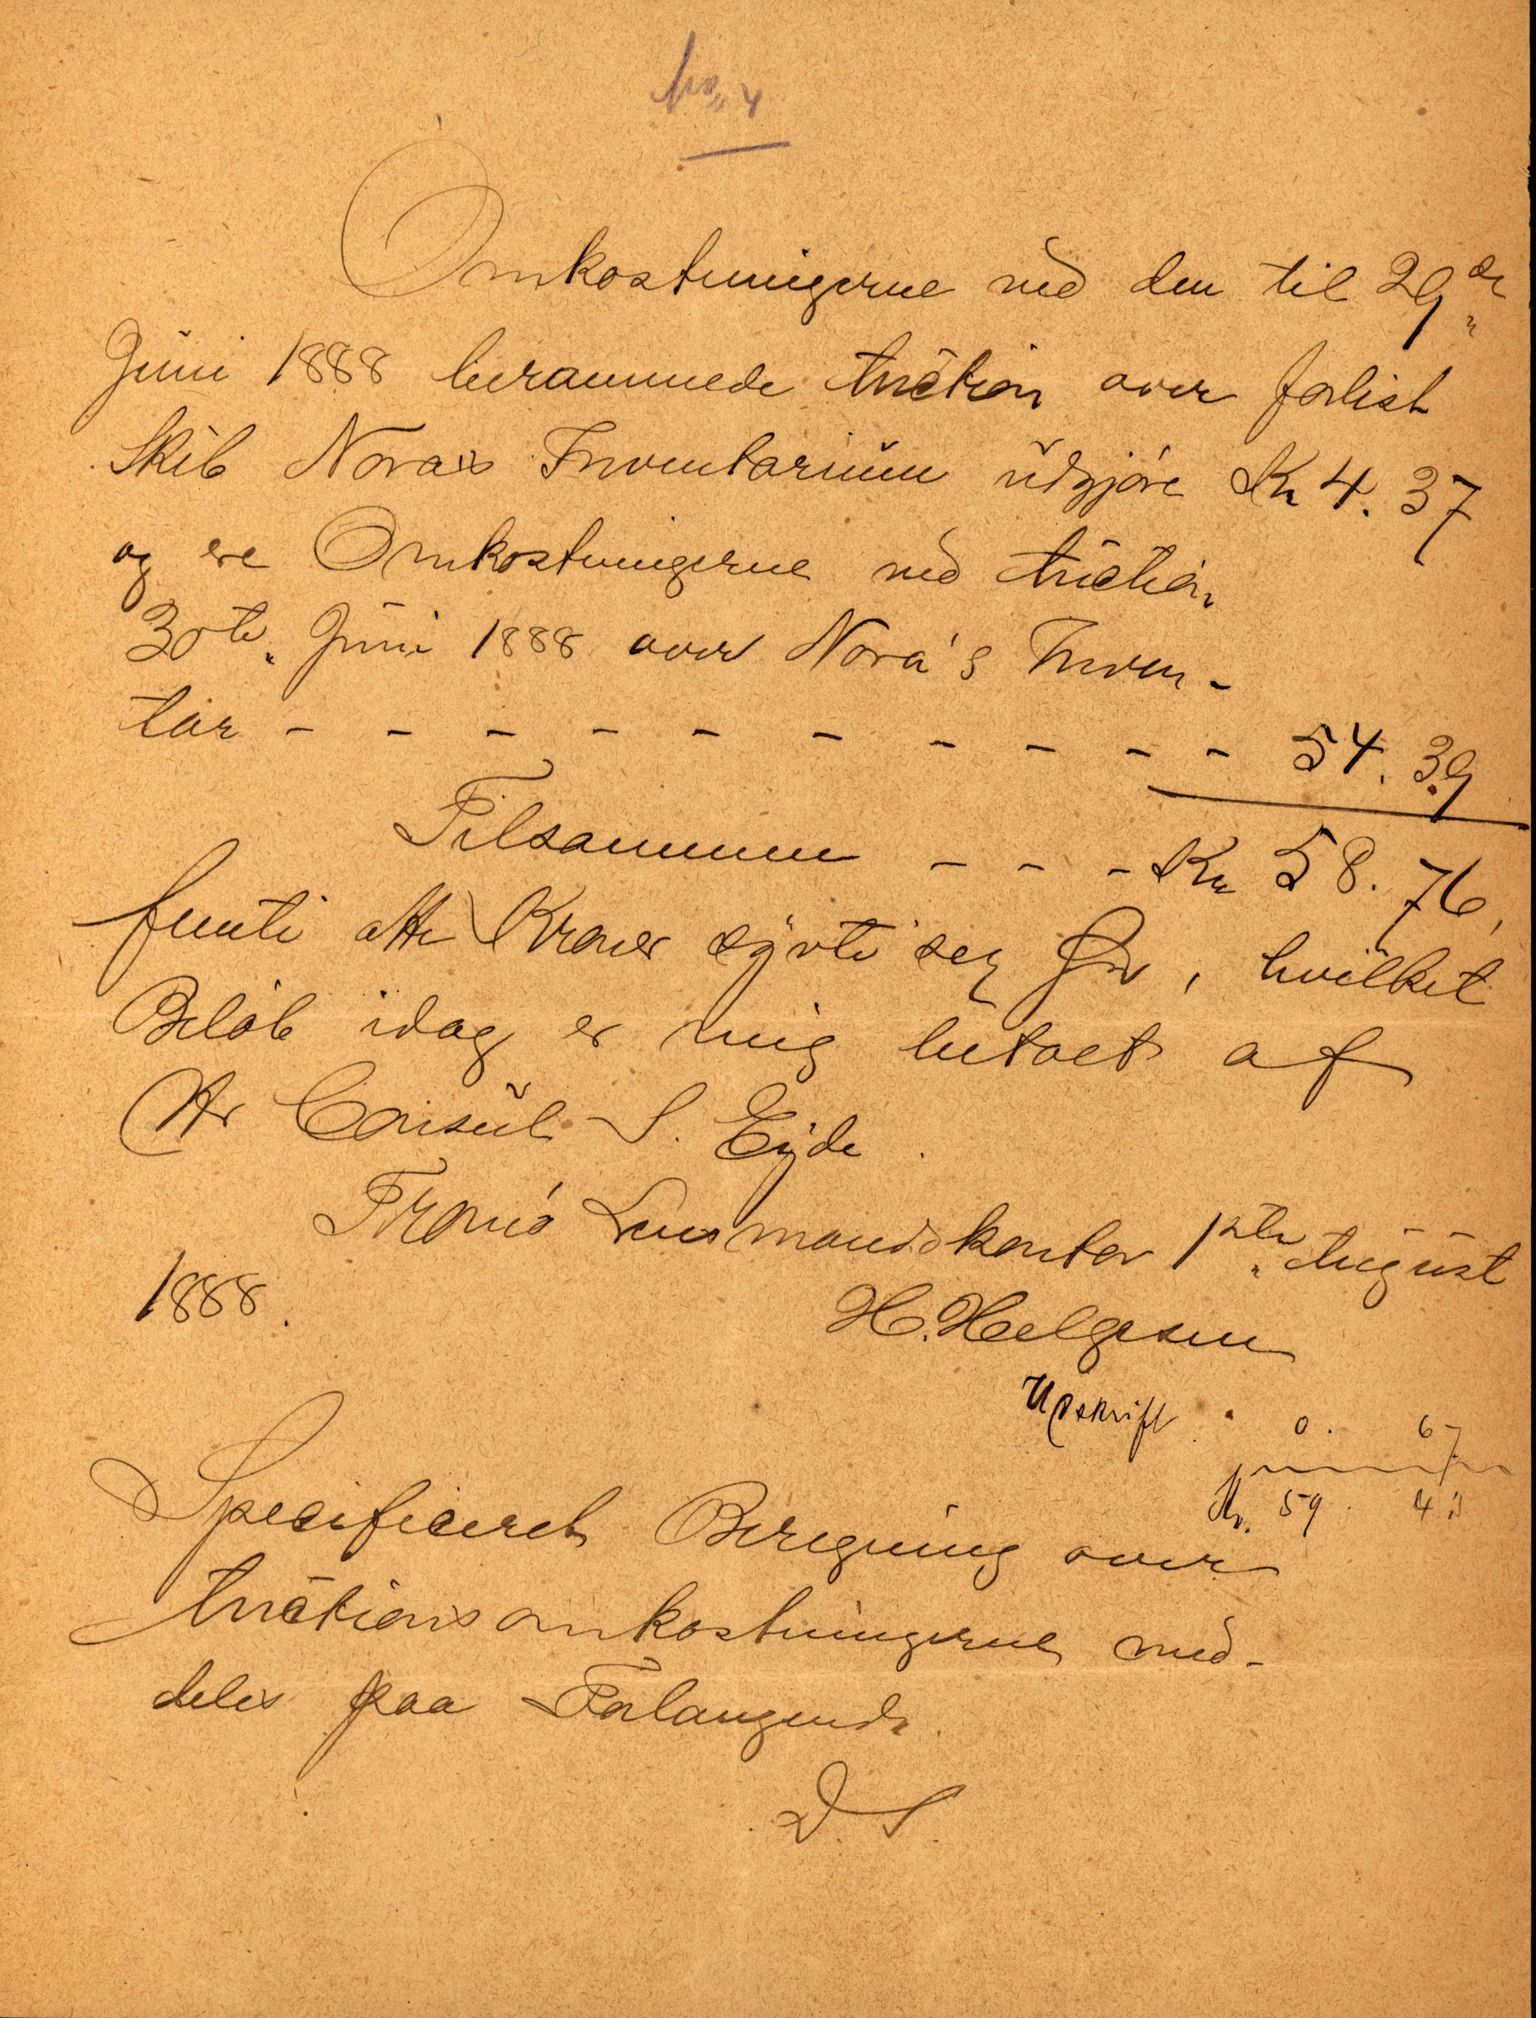 No 4
Omkostningerne ved den til 29de
Juni 1888 berammede Auction over forlist
Skib Noras Inventarium udgjøre Kr 4. 37
og ere Omkostningerne ved Auction
30te Juni 1888 over Nora's Inven-
tar - - - - - - - - - - 54. 39
Tilsammen - - - Kr 58. 76,
femti otte Kroner sytti sex Øre, hvilket
Beløb idag er mig betalt af
Hr Consul S. Eyde.
Tromø Lensmandskontor 1ste August
1888.
H. Helgesen
Udskrift . 0. 67
Kr. 59. 43
Specificeret Beregning over
Auctionsomkostningerne med-
deles paa Forlangende.
D. S.